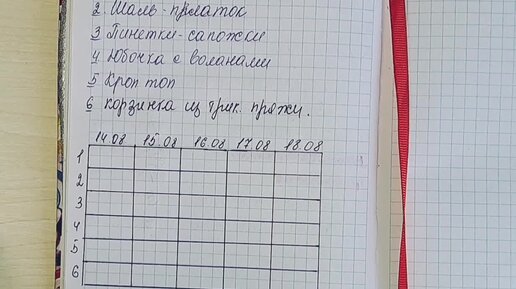 2 Шаль-платок
3 Пинетки-сапожки
4 Юбочка с воланами
5 Кроп топ
6 корзинка из трик. пряжи.
14.08 15.08 16.08 17.08 18.08
1
2
3
4
5
6